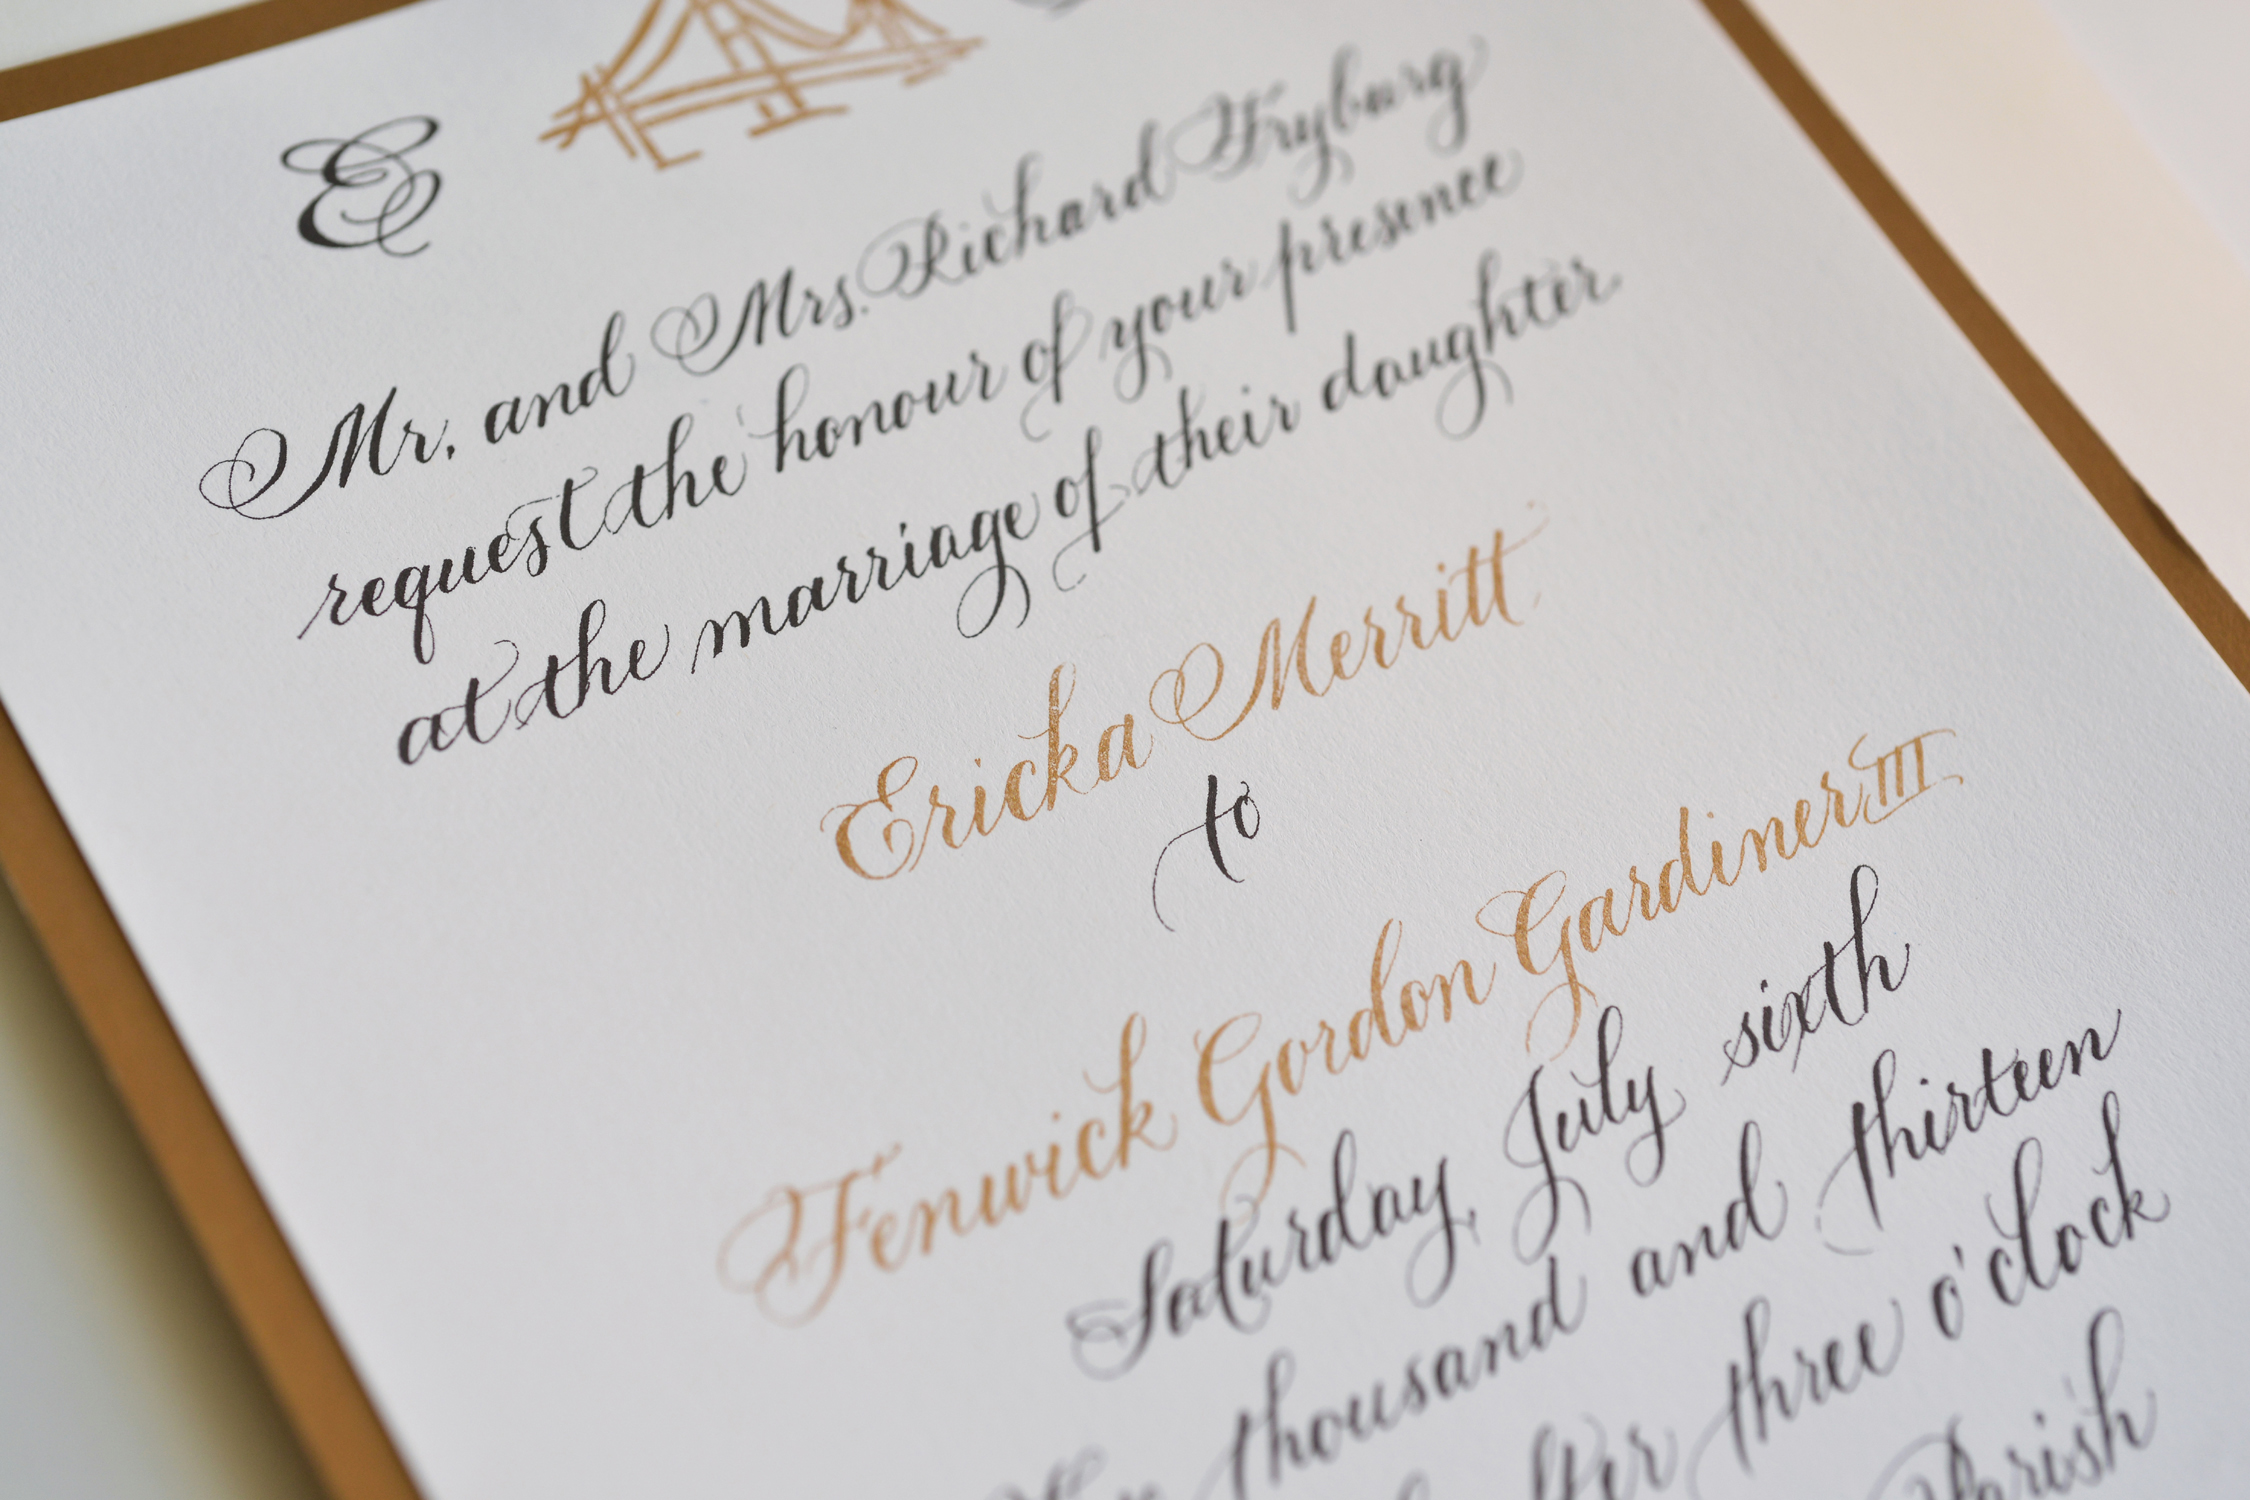 E
Mr. and Mrs. Richard Fryburg
request the honour of your presence
at the marriage of their daughter
Ericka Merritt
to
Fenwick Gordon Gardiner III
Saturday, July sixth
thousand and thirteen
three o'clock
Parish